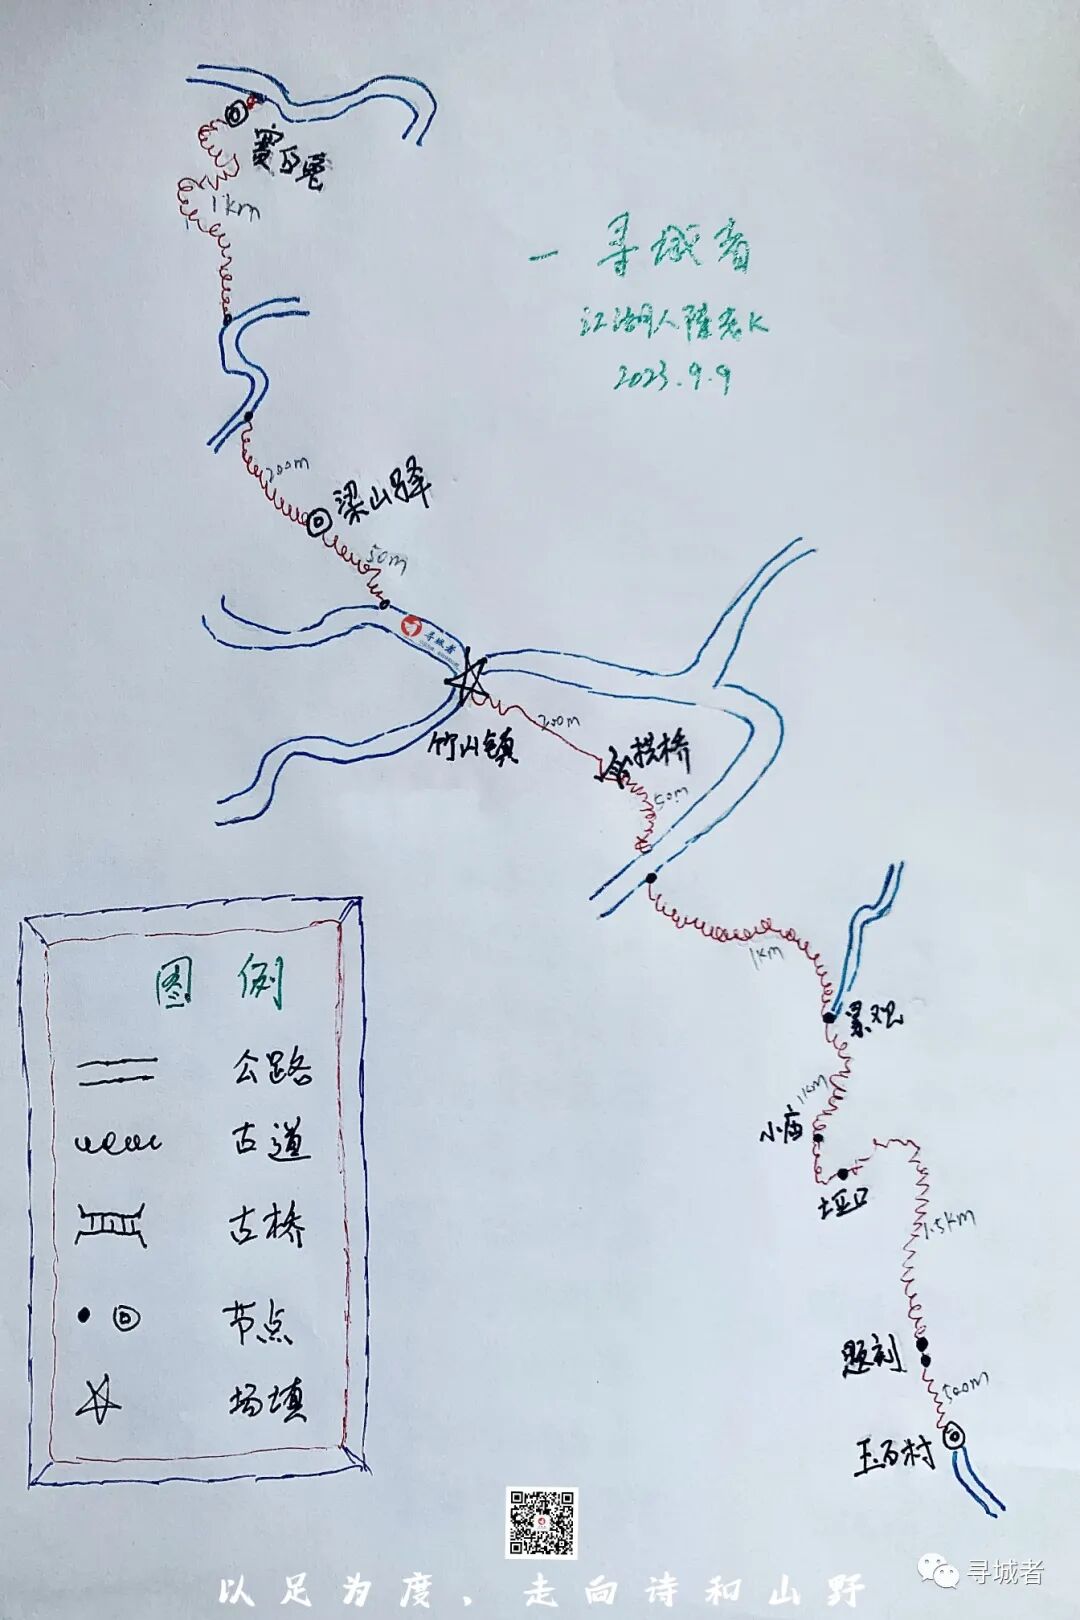 赛百兔
1km
一寻城者
江湖人陈老K
2023.9.9
200m
梁山驿
50m
寻城者
竹山镇
200m
拱桥
50m
1km
景观
1km
小庙
垭口
1.5km
题刻
500m
玉石村
图例
公路
古道
古桥
节点
场镇
以足为度，走向诗和山野
寻城者